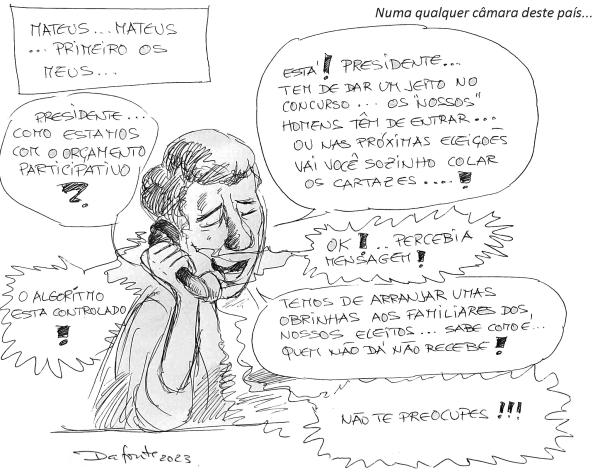 Numa qualquer câmara deste país...
MATEUS... MATEUS
... PRIMEIRO OS
MEUS...
PRESIDENTE...
COMO ESTAMOS
COM O ORÇAMENTO
PARTICIPATIVO
?
O ALGORÍTMO
ESTA CONTROLADO
!
ESTÁ! PRESIDENTE...
TEM DE DAR UM JEITO NO
CONCURSO... OS "NOSSOS"
HOMENS TÊM DE ENTRAR...
OU NAS PRÓXIMAS ELEIÇOÊS
VAI VOCÊ SOZINHO COLAR
OS CARTAZES....!
OK!.. PERCEBI A
MENSAGEM!
TEMOS DE ARRANJAR UMAS
OBRINHAS AOS FAMILIARES DOS
NOSSOS ELEITOS... SABE COMO E...
QUEM NÃO DÁ NÃO RECEBE!
NÃO TE PREOCUPES!!!
Dafonte 2023